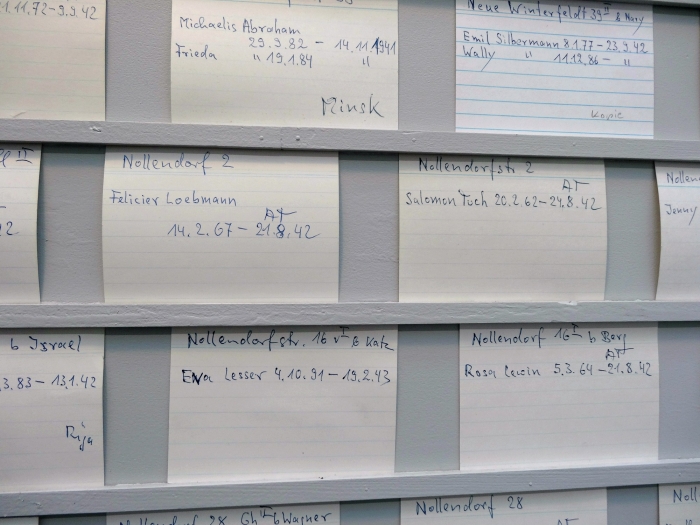 1.11.72-9.9.42
Michaelis Abraham
29.9.82 - 14.11.1941
Frieda " 19.1.84 "
Minsk
Neue Winterfeldt 39 II b Mary
Emil Silbermann 8.1.77-23.9.42
Wally " 11.12.86 - "
Kopie
II
2
Nollendorf 2
Felicier Loebmann
AT
14.2.67-21.8.42
Nollendorfstr 2
AT
Salomon Tuch 20.2.62-24.8.42
Nollen
Jenny
b Israel
3.83-13.1.42
Riga
Nollendorfstr. 16 v I b Katz
Eva Lesser 4.10.91-19.2.43
Nollendorf 16 I b Borg
AT
Rosa Lewin 5.3.64-21.8.42
Nollendorf 28 Gh II b Wagner
Nollendorf 28
AT